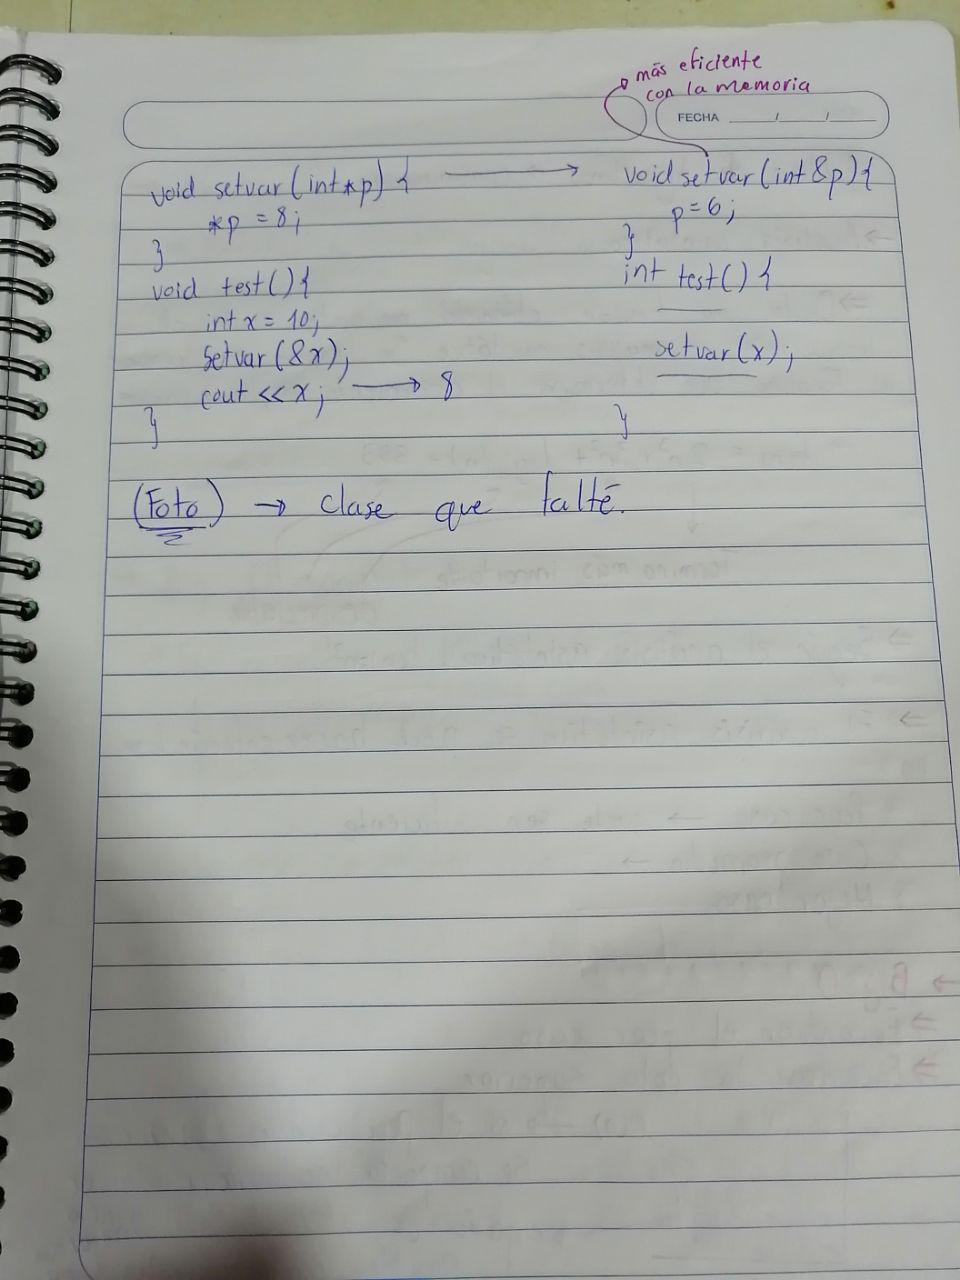 más eficiente
con la memoria
FECHA
void setvar (int *p) {
*p = 8;
}
void test() {
int x = 10;
setvar (&x);
cout << x; → 8
}
→
void setvar (int &p) {
p = 6;
}
int test() {
setvar (x);
}
(Foto) → clase que falté.